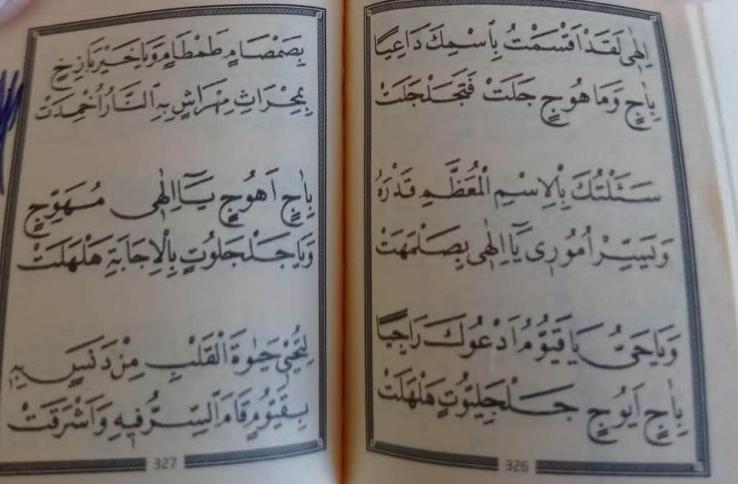 اِلٰهِى لَقَدْ اَقْسَمْتُ بِاْسْمِكَ دَاعِيًا
بِاٰجٍ وَمَا هُوجٍ جَلَتْ فَتَجَلْجَلَتْ
سَئَلْتُكَ بِالْاِسْمِ الْمُعَظَّمِ قَدْرُهُ
وَيَسِّرْ اُمُورِى يَٓا اِلٰهِى بِصَلْمَهَتْ
وَيَا حَىُّ يَا قَيُّومُ اَدْعُوكَ رَاجِيًا
بِاٰجٍ اَيُوجٍ جَلْجَلِيُّوتٍ هَلْهَلَتْ
326
بِصَمْصَامٍ طَمْطَامٍ وَيَا خَيْرَ بَازِخٍ
بِمِحْرَاثِ مِهْرَاشٍ بِهِ النَّارُ اُخْمِدَتْ
بِاٰجٍ اَهُوجٍ يَٓا اِلٰهِى مُهَوِّجٍ
وَيَا جَلْجَلُوتٍ بِالْاِجَابَةِ هَلْهَلَتْ
لِتُحْيِىَ حَيٰوةَ الْقَلْبِ مِنْ دَنَسٍ بِهِ
بِقَيُّومٍ قَامَ السِّرُّ فِيهِ وَاَشْرَقَتْ
327